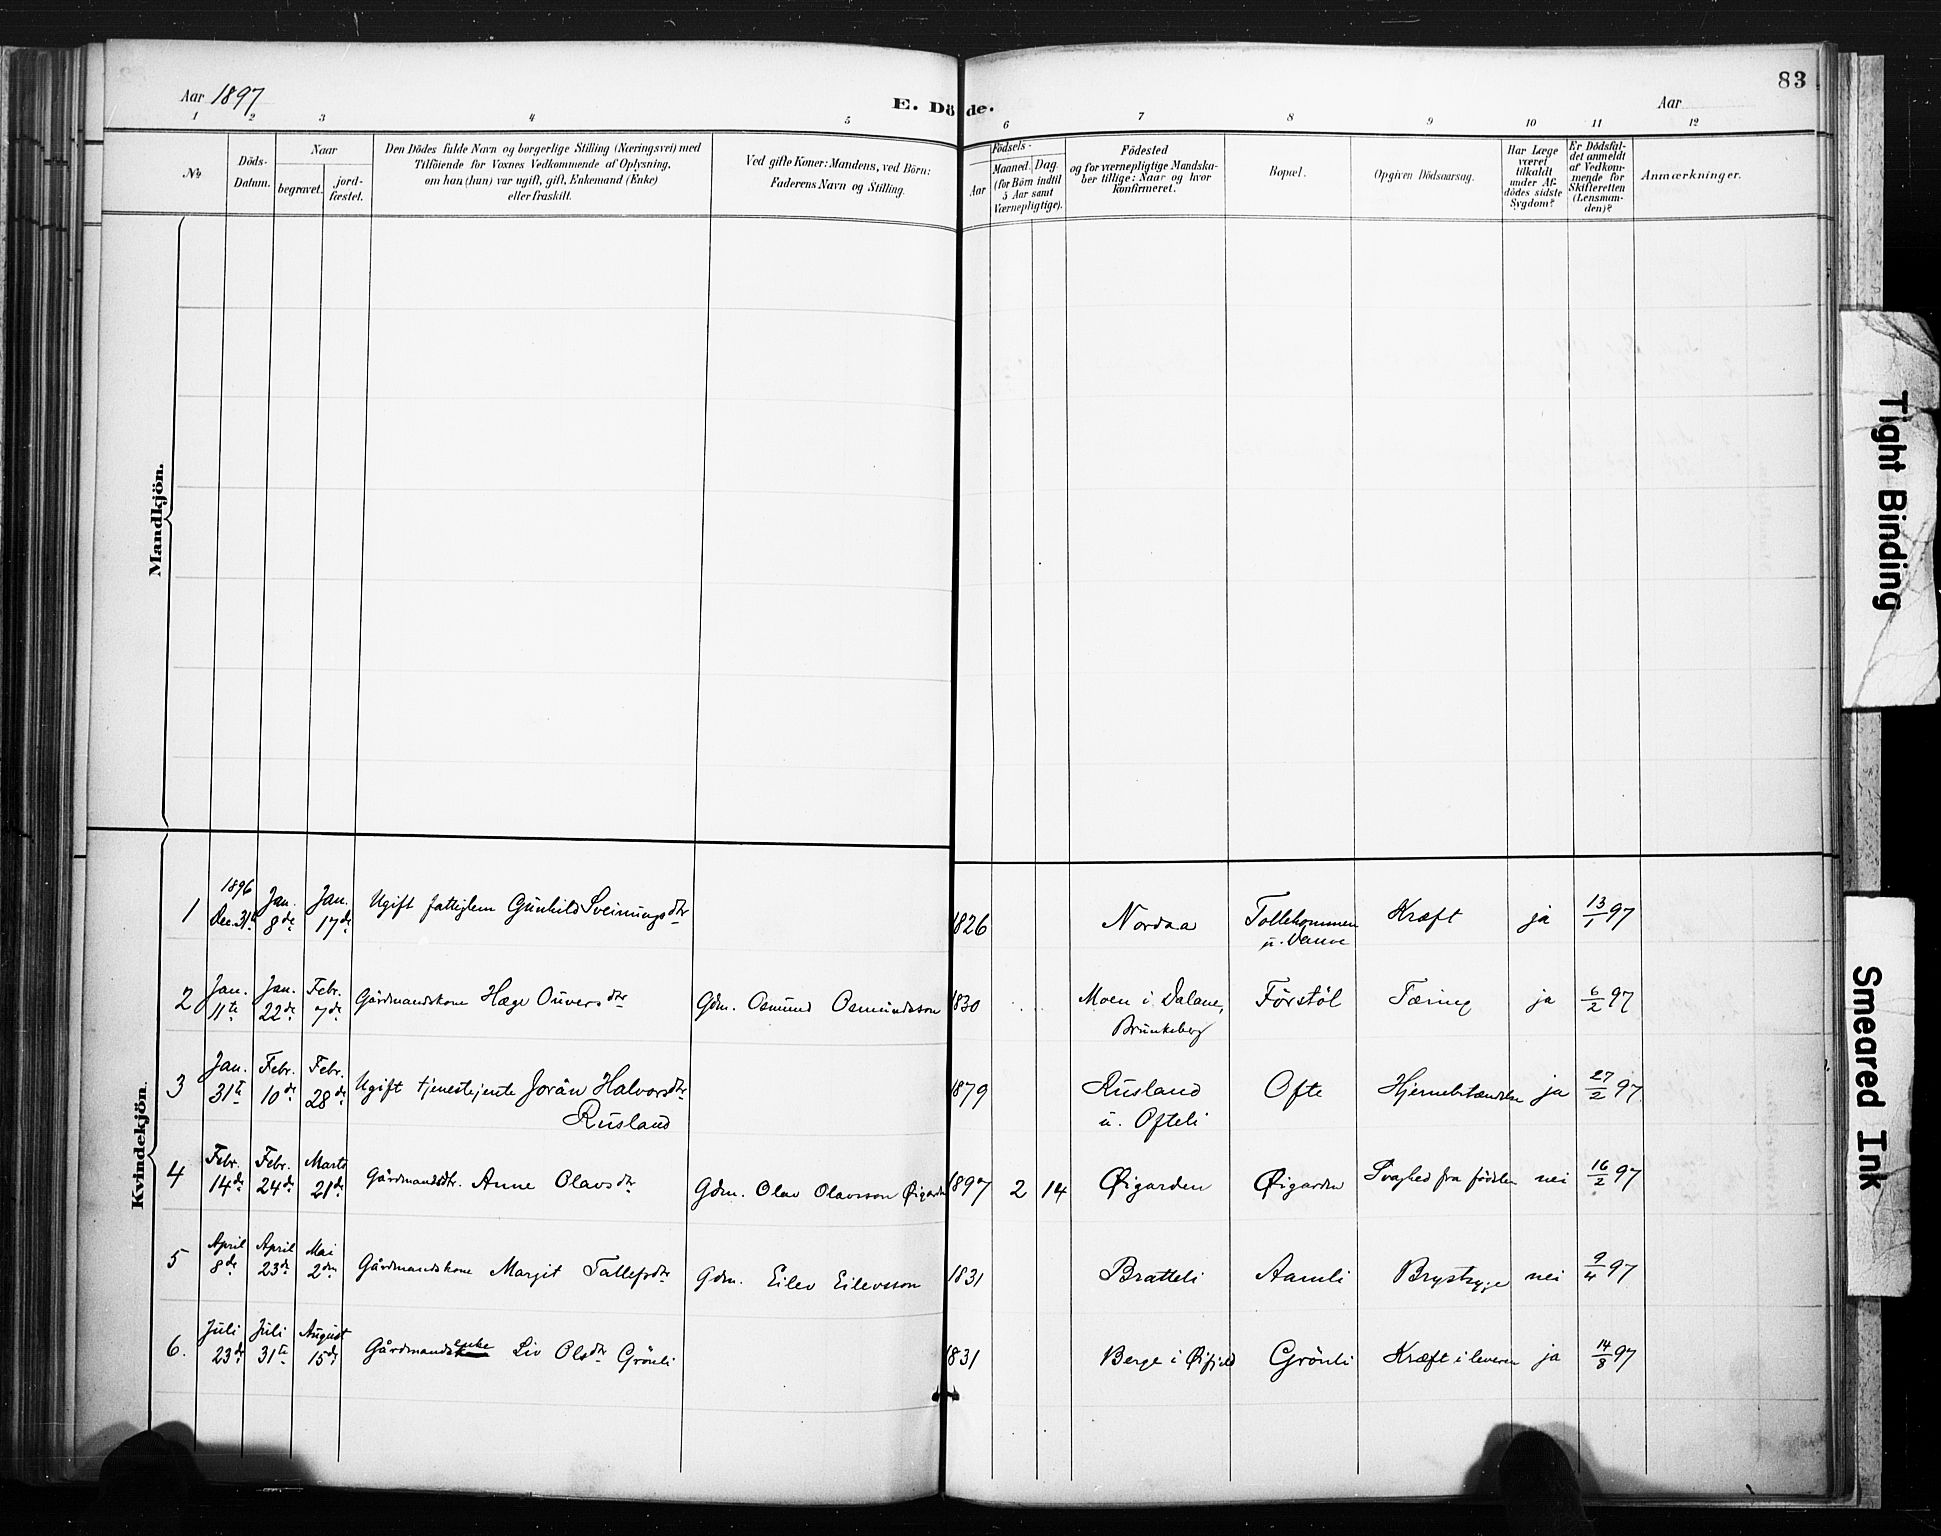 83
Aar 1897
E. Döde.
Aar
1 2 3 4 5 6 7 8 9 10 11 12
No
Döds-
Datum.
Naar
begravet.
jord-
fæstet.
Den Dödes fulde Navn og borgerlige Stilling (Næringsvei) med
Tilföiende for Voxnes Vedkommende af Oplysning,
om han (hun) var ugift, gift, Enkemand (Enke)
eller fraskilt.
Ved gifte Koner: Mandens, ved Börn:
Faderens Navn og Stilling.
Födsels-
Aar
Maaned. Dag.
(for Börn indtil
5 Aar samt
Værnepligtige).
Födested
og for værnepligtige Mandska-
ber tillige: Naar og hvor
konfirmeret.
Bopæl.
Opgiven Dödsaarsag.
Har Læge
været
tilkaldt
under Af-
dödes sidste
Sygdom?
Er Dödsfal-
det anmeldt
af Vedkom-
mende for
Skifteretten
(Lensman-
den)?
Anmærkninger.
Mandkjön.
Kvindekjön.
1 1896 Dec. 31te Jan. 8de Jan. 17de Ugift fattiglem Gunhild Sveinungsdtr 1826 Nordaa Tollehommen u. Kræft ja 13/1 97
2 Jan. 11te Jan. 22de Febr. 7de Gårdmandskone Hæge Ouversdtr Gdm. Osmund Osmundsson 1830 Moen i Dalane, Brunkeberg Förstöl Tæring ja 6/2 97
3 Jan. 31te Febr. 10de Febr. 28de Ugift tjenestejente Jorån Halvorsdtr Rusland 1879 Rusland u. Ofteli Ofte Hjernebetændelse ja 27/2 97
4 Febr. 14de Febr. 24de Marts 21de Gårdmandsdtr. Anne Olavsdtr Gdm. Olav Olavsson Øigarden 1897 2 14 Øigarden Øigarden Svaghed fra födslen nei 16/2 97
5 April 8de April 23de Mai 2den Gårdmandskone Margit Tallefsdtr Gdm. Eilev Eilevsson 1831 Bratteli Aamli Brystsyge nei 9/4 97
6. Juli 23de Juli 31te August 15de Gårdmandsenke Liv Olsdtr Grönli 1831 Berge i Øifjeld Grönli Kræft i leveren ja 14/8 97
Tight Binding
Smeared Ink